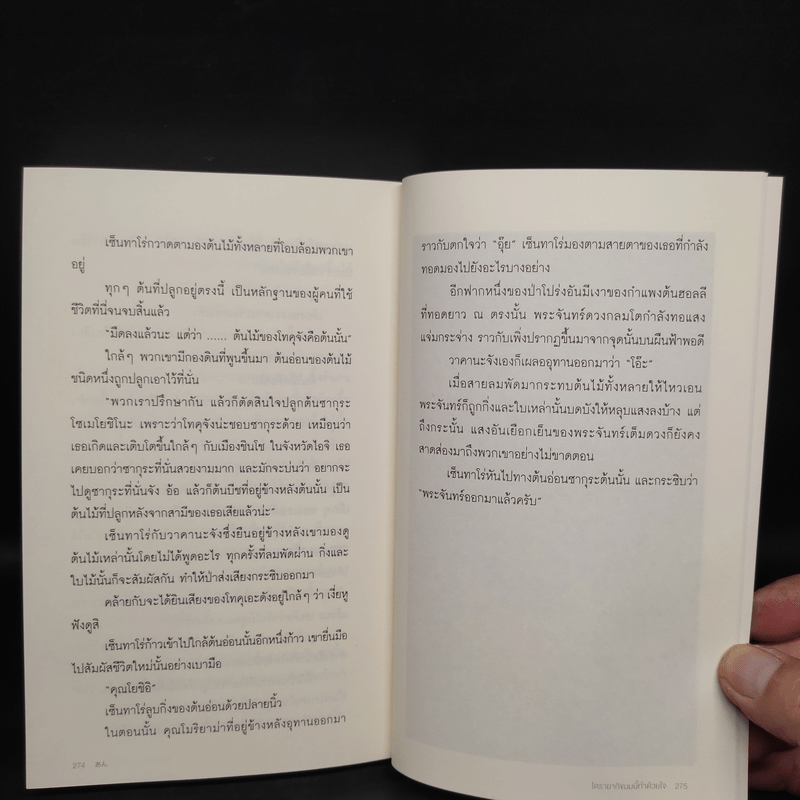 เซ็นทาโร่กวาดตามองต้นไม้ทั้งหลายที่โอบล้อมพวกเขา
อยู่
ทุกๆ ต้นที่ปลูกอยู่ตรงนี้ เป็นหลักฐานของผู้คนที่ใช้
ชีวิตที่นี่จนจบสิ้นแล้ว
“มืดลงแล้วนะ แต่ว่า ...... ต้นไม้ของโทคุจังคือต้นนั้น”
ใกล้ๆ พวกเขามีกองดินที่พูนขึ้นมา ต้นอ่อนของต้นไม้
ชนิดหนึ่งถูกปลูกเอาไว้ที่นั่น
“พวกเราปรึกษากัน แล้วก็ตัดสินใจปลูกต้นซากุระ
โซเมโยชิโนะ เพราะว่าโทคุจังน่ะชอบซากุระด้วย เหมือนว่า
เธอเกิดและเติบโตขึ้นใกล้ๆ กับเมืองชินโช ในจังหวัดไอจิ เธอ
เคยบอกว่าซากุระที่นั่นสวยงามมาก และมักจะบ่นว่า อยากจะ
ไปดูซากุระที่นั่นจัง อ้อ แล้วก็ต้นบีชที่อยู่ข้างหลังต้นนั้น เป็น
ต้นไม้ที่ปลูกหลังจากสามีของเธอเสียแล้วน่ะ”
เซ็นทาโร่กับวาคานะจังซึ่งยืนอยู่ข้างหลังเขามองดู
ต้นไม้เหล่านั้นโดยไม่ได้พูดอะไร ทุกครั้งที่ลมพัดผ่าน กิ่งและ
ใบไม้นั้นก็จะสัมผัสกัน ทำให้ป่าส่งเสียงกระซิบออกมา
คล้ายกับจะได้ยินเสียงของโทคุเอะดังอยู่ใกล้ๆ ว่า เงี่ยหู
ฟังดูสิ
เซ็นทาโร่ก้าวเข้าไปใกล้ต้นอ่อนนั้นอีกหนึ่งก้าว เขายื่นมือ
ไปสัมผัสชีวิตใหม่นั้นอย่างเบามือ
“คุณโยชิอิ”
เซ็นทาโร่ลูบกิ่งของต้นอ่อนด้วยปลายนิ้ว
ในตอนนั้น คุณโมริยาม่าที่อยู่ข้างหลังอุทานออกมา
274
ราวกับตกใจว่า “อุ๊ย” เซ็นทาโร่มองตามสายตาของเธอที่กำลัง
ทอดมองไปยังอะไรบางอย่าง
อีกฟากหนึ่งของป่าโปร่งอันมีเงาของกำแพงต้นฮอลลี
ที่ทอดยาว ณ ตรงนั้น พระจันทร์ดวงกลมโตกำลังทอแสง
แจ่มกระจ่าง ราวกับเพิ่งปรากฏขึ้นมาจากจุดนั้นบนผืนฟ้าพอดี
วาคานะจังเองก็เผลออุทานออกมาว่า “โอ๊ะ”
เมื่อสายลมพัดมากระทบต้นไม้ทั้งหลายให้ไหวเอน
พระจันทร์ก็ถูกกิ่งและใบเหล่านั้นบดบังให้หลุบแสงลงบ้าง แต่
ถึงกระนั้น แสงอันเยือกเย็นของพระจันทร์เต็มดวงก็ยังคง
สาดส่องมาถึงพวกเขาอย่างไม่ขาดตอน
เซ็นทาโร่หันไปทางต้นอ่อนซากุระต้นนั้น และกระซิบว่า
“พระจันทร์ออกมาแล้วครับ”
โดรายากิขนมนี้ทำด้วยใจ 275